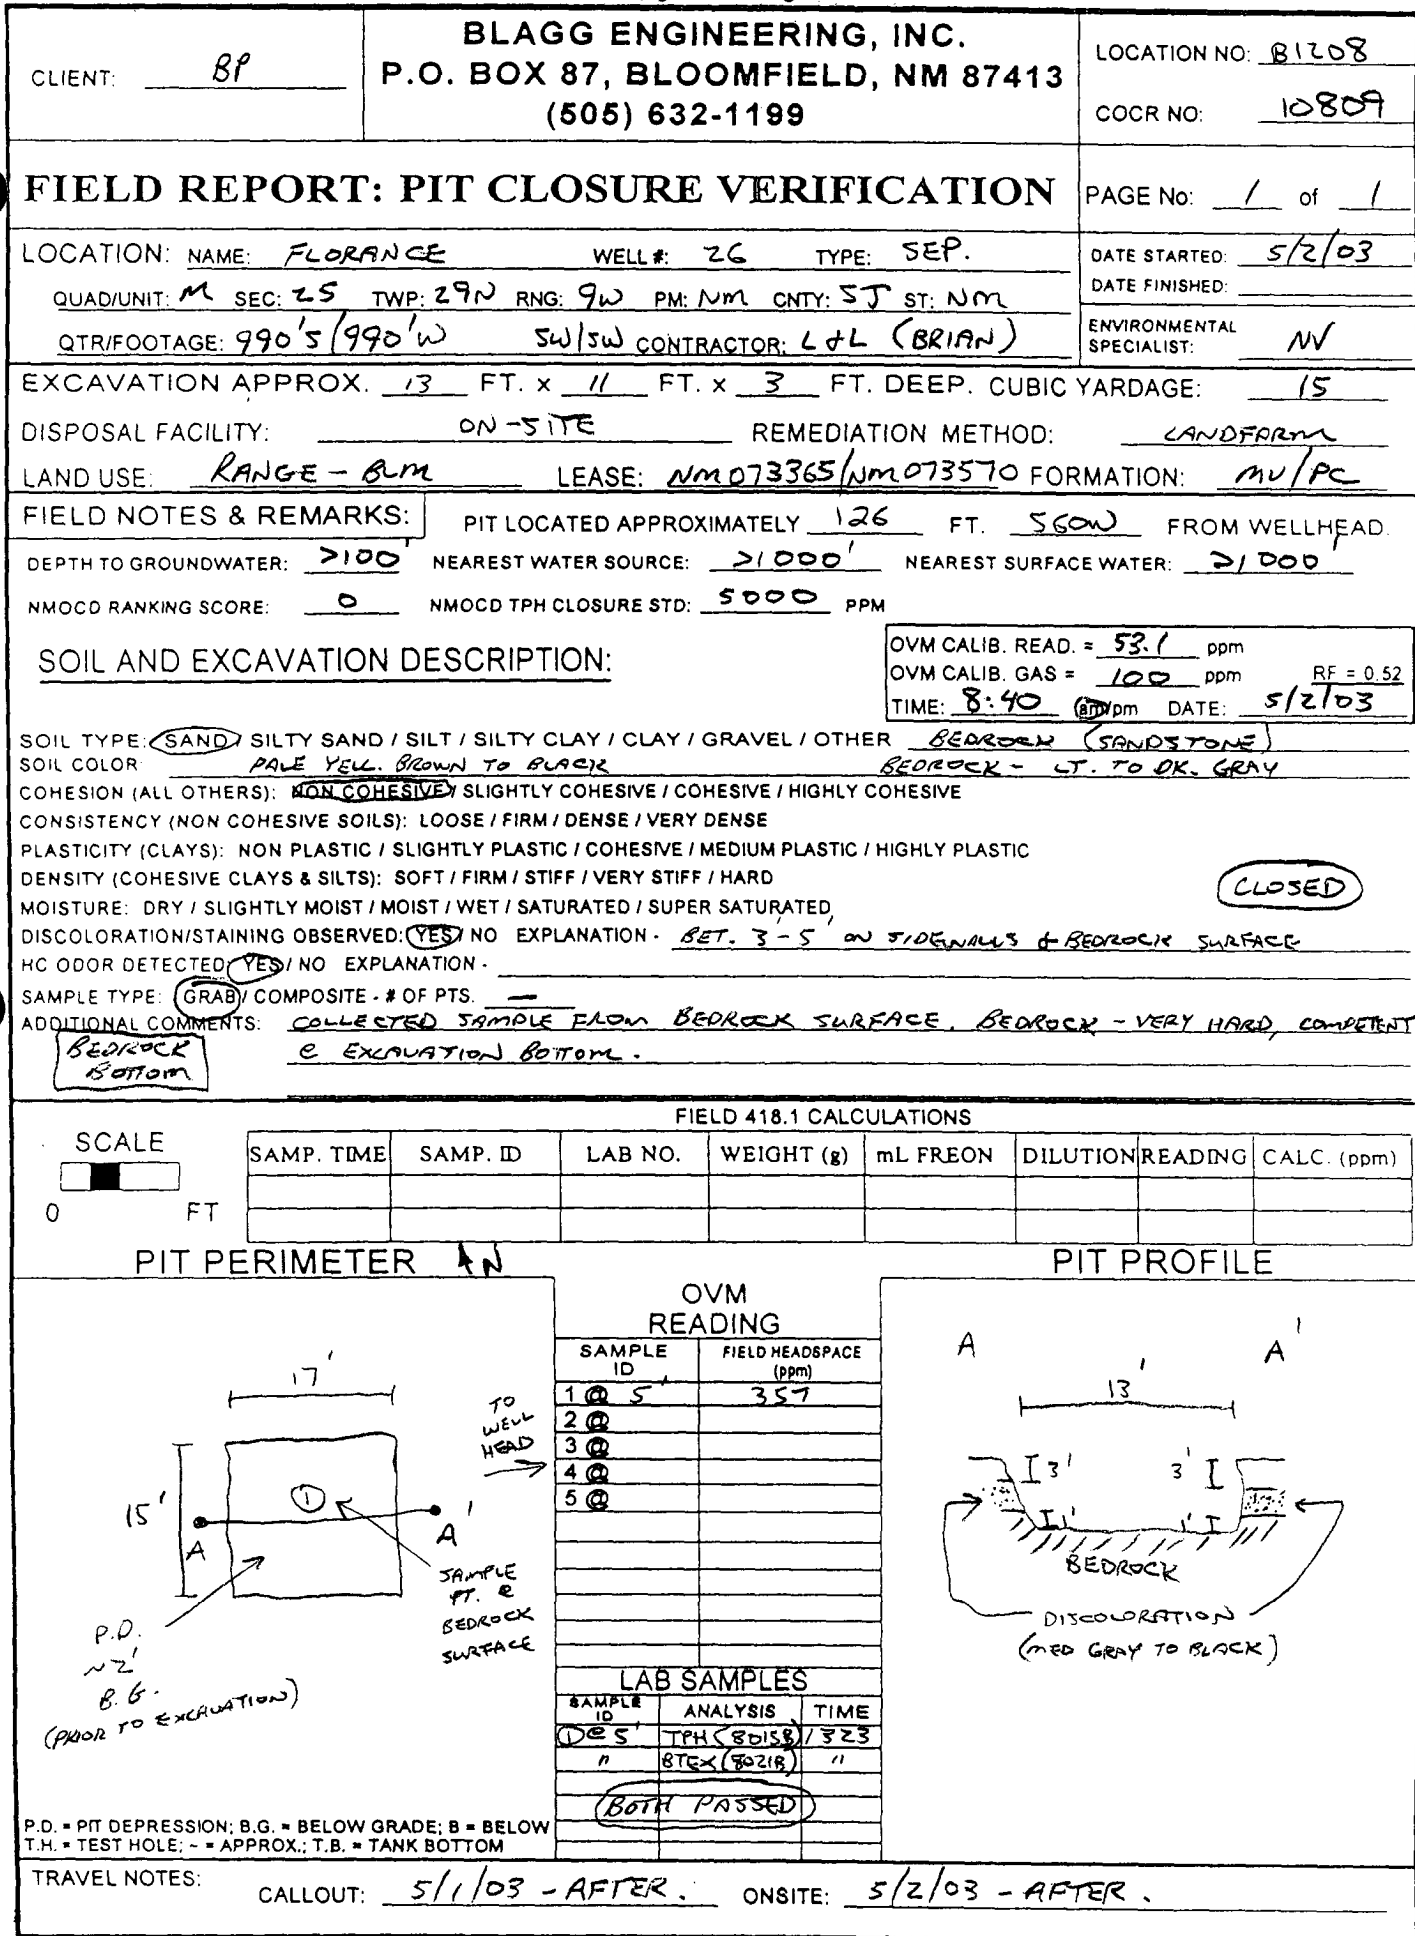 BLAGG ENGINEERING, INC.
P.O. BOX 87, BLOOMFIELD, NM 87413
(505) 632-1199
CLIENT: BP
LOCATION NO: B1208
COCR NO: 10809
FIELD REPORT: PIT CLOSURE VERIFICATION
PAGE No: 1 of 1
LOCATION: NAME: FLORANCE WELL #: 26 TYPE: SEP.
QUAD/UNIT: M SEC: 25 TWP: 29N RNG: 9W PM: NM CNTY: SJ ST: NM
QTR/FOOTAGE: 990'S/990'W SW/SW CONTRACTOR: L&L (BRIAN)
DATE STARTED: 5/2/03
DATE FINISHED:
ENVIRONMENTAL SPECIALIST: NV
EXCAVATION APPROX. 13 FT. x 11 FT. x 3 FT. DEEP. CUBIC YARDAGE: 15
DISPOSAL FACILITY: ON-SITE REMEDIATION METHOD: LANDFARM
LAND USE: RANGE - BLM LEASE: NM073365/NM073570 FORMATION: MV/PC
FIELD NOTES & REMARKS: PIT LOCATED APPROXIMATELY 126 FT. S60W FROM WELLHEAD.
DEPTH TO GROUNDWATER: >100' NEAREST WATER SOURCE: >1000' NEAREST SURFACE WATER: >1000'
NMOCD RANKING SCORE: 0 NMOCD TPH CLOSURE STD: 5000 PPM
SOIL AND EXCAVATION DESCRIPTION:
OVM CALIB. READ. = 53.1 ppm
OVM CALIB. GAS = 100 ppm RF = 0.52
TIME: 8:40 am/pm DATE: 5/2/03
SOIL TYPE: SAND / SILTY SAND / SILT / SILTY CLAY / CLAY / GRAVEL / OTHER BEDROCK (SANDSTONE)
SOIL COLOR: PALE YELL. BROWN TO BLACK BEDROCK - LT. TO DK. GRAY
COHESION (ALL OTHERS): NON COHESIVE / SLIGHTLY COHESIVE / COHESIVE / HIGHLY COHESIVE
CONSISTENCY (NON COHESIVE SOILS): LOOSE / FIRM / DENSE / VERY DENSE
PLASTICITY (CLAYS): NON PLASTIC / SLIGHTLY PLASTIC / COHESIVE / MEDIUM PLASTIC / HIGHLY PLASTIC
DENSITY (COHESIVE CLAYS & SILTS): SOFT / FIRM / STIFF / VERY STIFF / HARD
CLOSED
MOISTURE: DRY / SLIGHTLY MOIST / MOIST / WET / SATURATED / SUPER SATURATED
DISCOLORATION/STAINING OBSERVED: YES / NO EXPLANATION - BET. 3-5' ON SIDEWALLS & BEDROCK SURFACE
HC ODOR DETECTED: YES / NO EXPLANATION -
SAMPLE TYPE: GRAB / COMPOSITE - # OF PTS. —
ADDITIONAL COMMENTS: COLLECTED SAMPLE FROM BEDROCK SURFACE. BEDROCK - VERY HARD, COMPETENT
@ EXCAVATION BOTTOM.
BEDROCK
BOTTOM
FIELD 418.1 CALCULATIONS
SCALE
0 FT
SAMP. TIME SAMP. ID LAB NO. WEIGHT (g) mL FREON DILUTION READING CALC. (ppm)
PIT PERIMETER N
PIT PROFILE
OVM
READING
SAMPLE ID FIELD HEADSPACE (ppm)
1 @ 5' 357
2 @
3 @
4 @
5 @
17'
15'
A
A'
TO
WELL
HEAD
1
SAMPLE
PT. @
BEDROCK
SURFACE
P.D.
~2'
B.G.
(PRIOR TO EXCAVATION)
A A'
13'
3' 3'
1' 1'
BEDROCK
DISCOLORATION
(MED GRAY TO BLACK)
LAB SAMPLES
SAMPLE ID ANALYSIS TIME
1 @ 5' TPH (8015B) 1323
" BTEX (8021B) "
BOTH PASSED
P.D. = PIT DEPRESSION; B.G. = BELOW GRADE; B = BELOW
T.H. = TEST HOLE; ~ = APPROX.; T.B. = TANK BOTTOM
TRAVEL NOTES: CALLOUT: 5/1/03 - AFTER. ONSITE: 5/2/03 - AFTER.